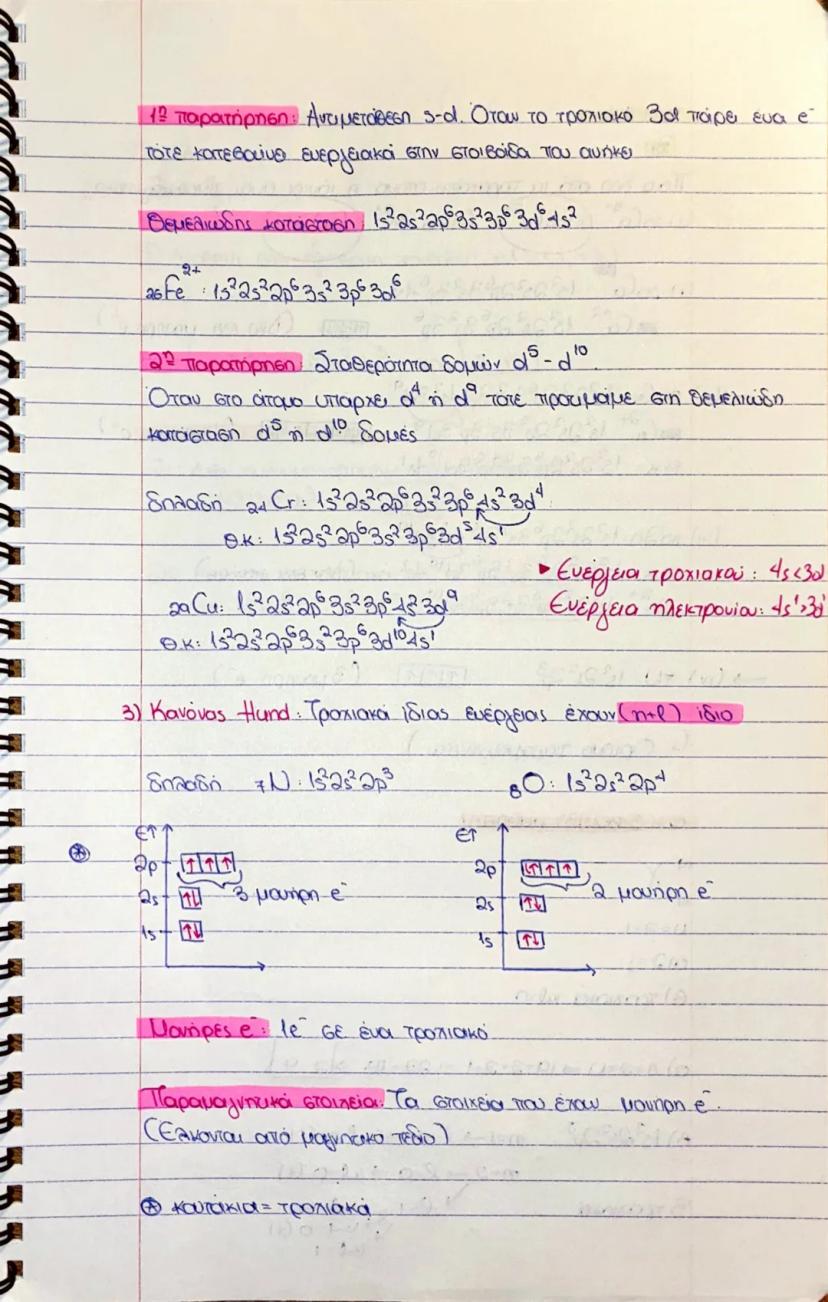 1η παρατήρηση: Αντιμετάθεση s-d. Όταν το τροχιακό 3d πάρει ένα e⁻
τότε κατεβαίνει ενεργειακά στην στοιβάδα που ανήκει
Θεμελιώδης κατάσταση: 1s²2s²2p⁶3s²3p⁶3d⁶4s²
₂₆Fe²⁺: 1s²2s²2p⁶3s²3p⁶3d⁶
2η παρατήρηση: Σταθερότητα δομών d⁵ - d¹⁰.
Όταν στο άτομο υπάρχει d⁴ ή d⁹ τότε προτιμάμε στη θεμελιώδη
κατάσταση d⁵ ή d¹⁰ δομές
δηλαδή ₂₄Cr: 1s²2s²2p⁶3s²3p⁶4s²3d⁴
Θ.Κ: 1s²2s²2p⁶3s²3p⁶3d⁵4s¹
▸ Ενέργεια τροχιακού: 4s<3d
₂₉Cu: 1s²2s²2p⁶3s²3p⁶4s²3d⁹
Ενέργεια ηλεκτρονίου: 4s¹>3d¹
Θ.Κ: 1s²2s²2p⁶3s²3p⁶3d¹⁰4s¹
3) Κανόνας Hund: Τροχιακά ίδιας ενέργειας έχουν (n+l) ίδιο
δηλαδή ₇N: 1s²2s²2p³ ₈O: 1s²2s²2p⁴
E↑ E↑
⊛ 2p ↑ ↑ ↑ 2p ↑↓ ↑ ↑
2s ↑↓ 3 μονήρη e⁻ 2s ↑↓ 2 μονήρη e⁻
1s ↑↓ 1s ↑↓
Μονήρες e⁻: 1e⁻ σε ένα τροχιακό
Παραμαγνητικά στοιχεία: Τα στοιχεία που έχουν μονήρη e⁻.
(Έλκονται από μαγνητικό πεδίο)
⊛ κουτάκια = τροχιακά